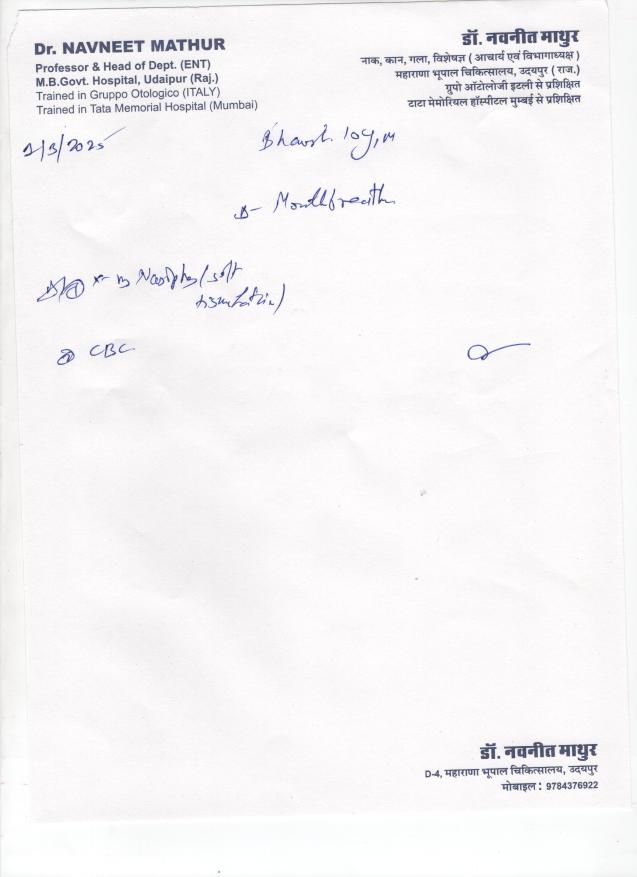 Dr. NAVNEET MATHUR
Professor & Head of Dept. (ENT)
M.B.Govt. Hospital, Udaipur (Raj.)
Trained in Gruppo Otologico (ITALY)
Trained in Tata Memorial Hospital (Mumbai)
डॉ. नवनीत माथुर
नाक, कान, गला, विशेषज्ञ ( आचार्य एवं विभागाध्यक्ष )
महाराणा भूपाल चिकित्सालय, उदयपुर ( राज.)
ग्रुपो ऑटोलोजी इटली से प्रशिक्षित
टाटा मेमोरियल हॉस्पीटल मुम्बई से प्रशिक्षित
/3/2025
10y, M
CBC
डॉ. नवनीत माथुर
D-4, महाराणा भूपाल चिकित्सालय, उदयपुर
मोबाइल : 9784376922